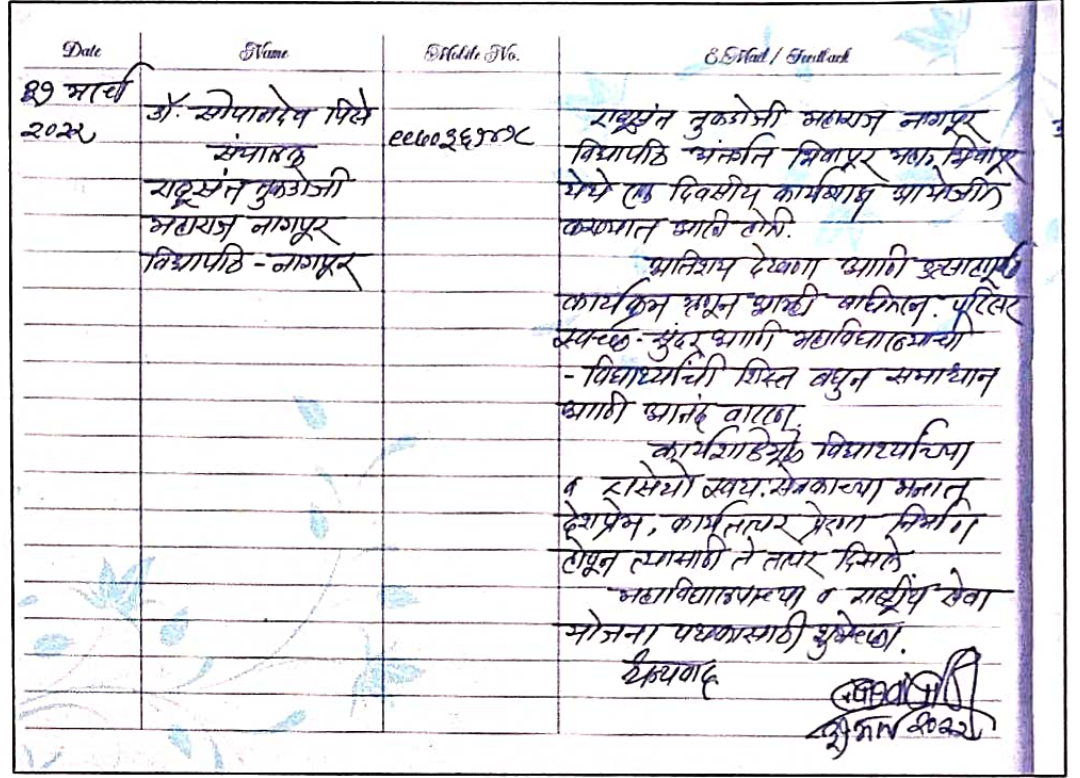 Date Name Mobile No. E.Mail / Feedback
३१ मार्च
२०२२
डॉ. सोपानदेव पिसे
संचालक
राष्ट्रसंत तुकडोजी
महाराज नागपूर
विद्यापीठ - नागपूर
राष्ट्रसंत तुकडोजी महाराज नागपूर
विद्यापीठ अंतर्गत भिवापूर महा. भिवापूर
येथे एक दिवसीय कार्यशाळा आयोजीत
करण्यात आली होती.
अतिशय देखणा आणि उत्साहपूर्ण
कार्यक्रम म्हणून आम्ही बघितला. परिसर
स्वच्छ - सुंदर आणि महाविद्यालयाची
- विद्यार्थ्यांची शिस्त बघुन समाधान
आणि आनंद वाटला.
कार्यशाळेमुळे विद्यार्थ्यांच्या
व रासेयो स्वयं.सेवकाच्या मनात
देशप्रेम, कार्यतत्पर प्रेरणा निर्माण
होवून त्यासाठी ते तत्पर दिसले
महाविद्यालयाच्या व राष्ट्रीय सेवा
योजना पथकासाठी शुभेच्छा.
धन्यवाद
३१ मार्च २०२२